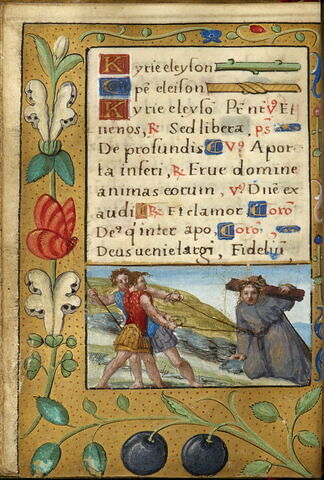 Kyrie eleyson
Xpē eleison
Kyrie eleysō Pr̄ nr̄ Et
nenos, R Sed libera, ps
De profundis V A por
ta inferi, R Erue domine
animas eorum, V Dn̄e ex
audi R Et clamor Orō
Deq inter apo, Orō
Deus venie largi, Fideliū,